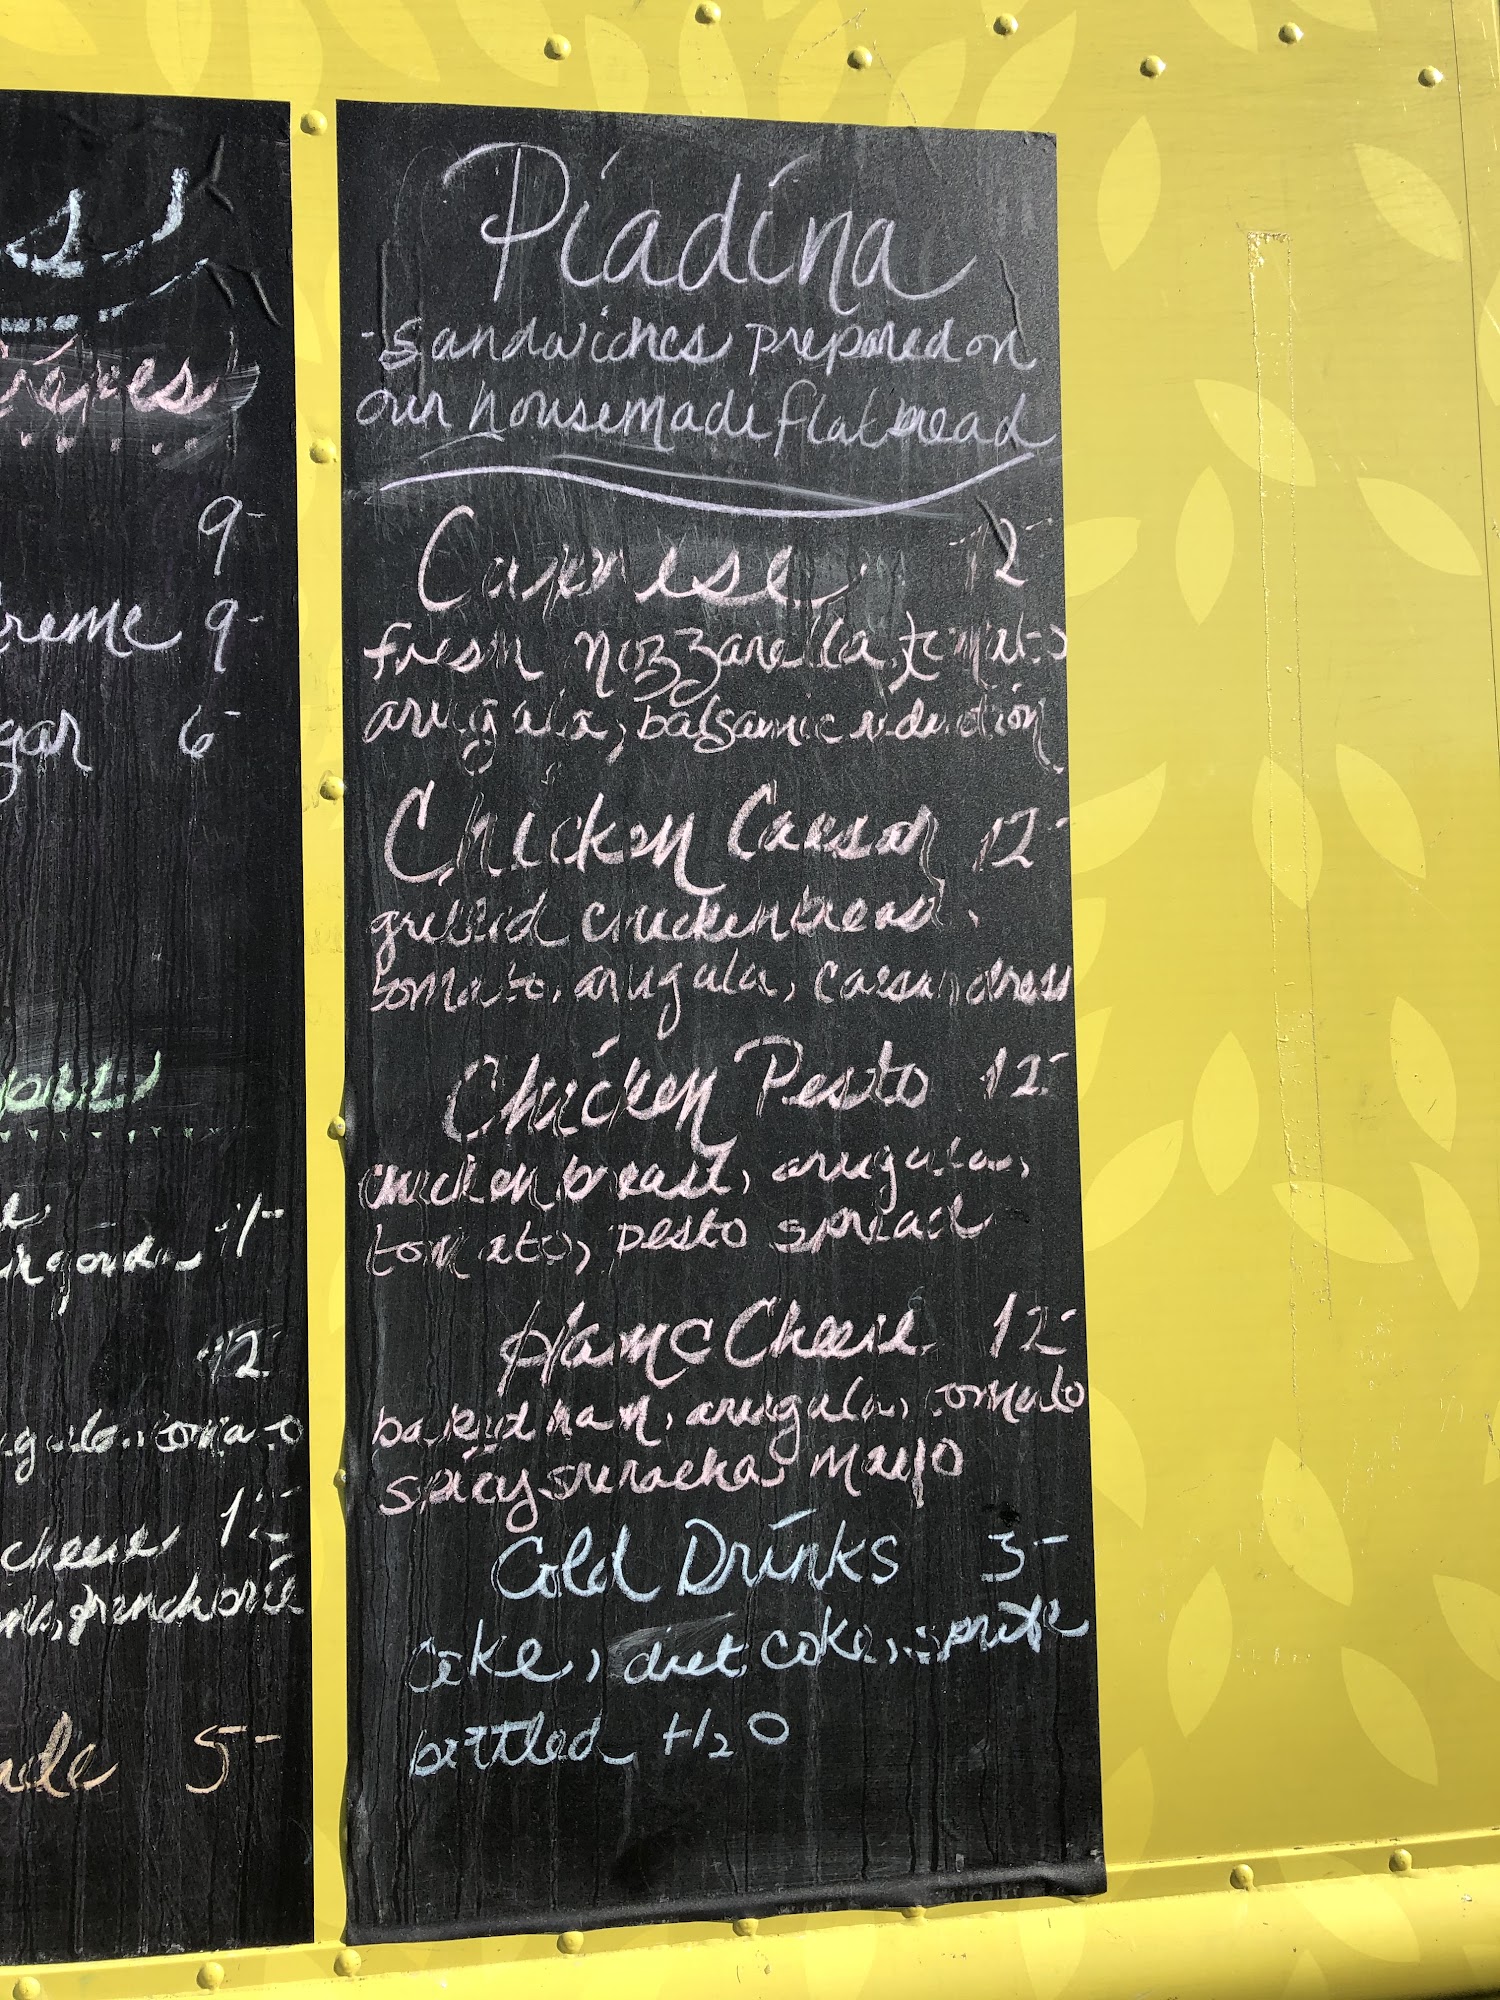 9-
reme 9-
gar 6-
gouda
12
tomato
cheese
5-
Piadina
-sandwiches prepared on
our housemade flatbread
Caprese 12-
fresh mozzarella, tomato
arugula, balsamic reduction
Chicken Caesar 12-
grilled chicken breast,
tomato, arugula, caesar dress
Chicken Pesto 12-
chicken breast, arugula,
tomato, pesto spread
Ham & Cheese 12-
baked ham, arugula, tomato
spicy sriracha mayo
Cold Drinks 3-
coke, diet coke, sprite
bottled H2O